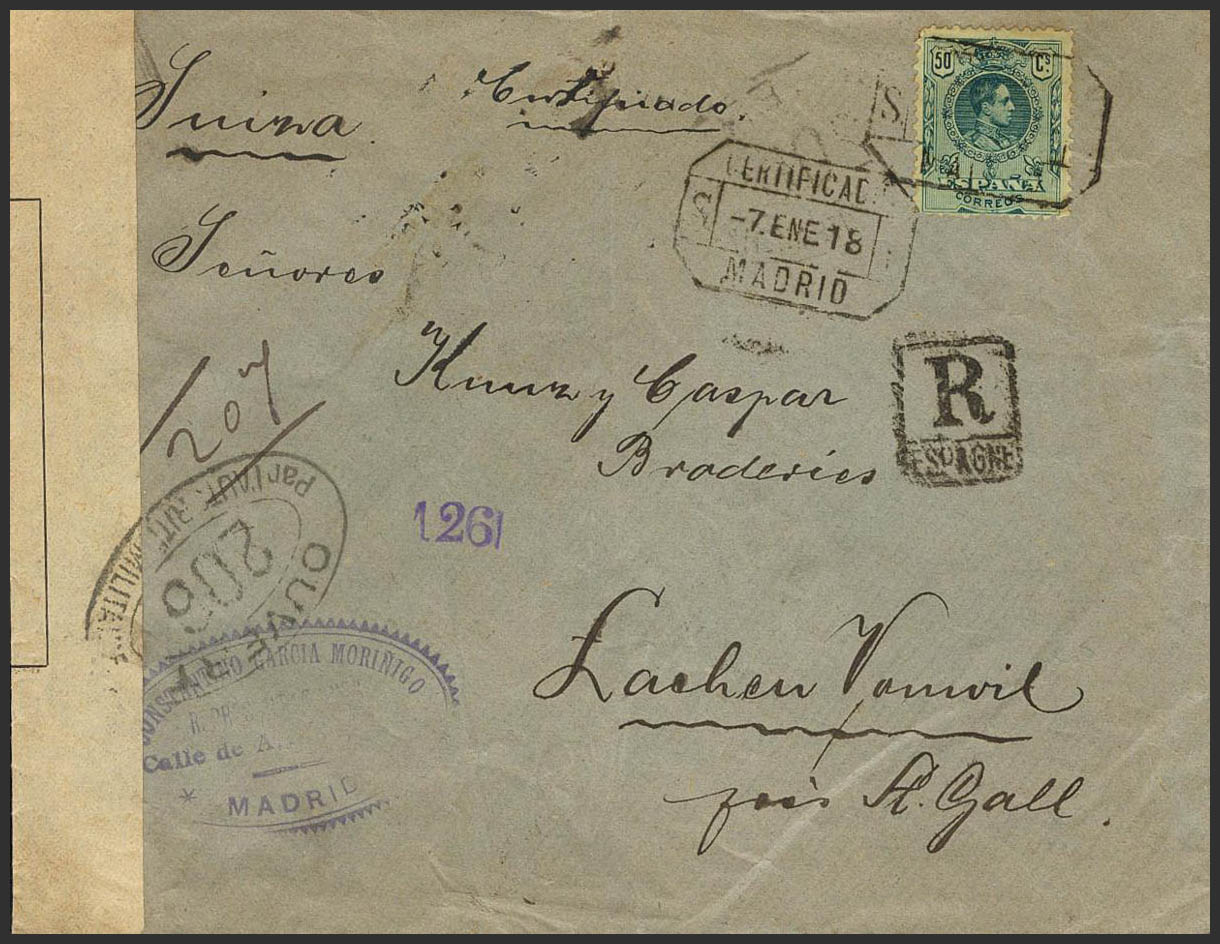 Suiza
Certificado.
50 Cs
ESPAÑA
CORREOS
CERTIFICAD
S
-7. ENE 18
MADRID
Señores
Kunz y Caspar
Broderies
R
ESPAGNE
207
Par l'AUTORITÉ MILITA
200
OUVERT
126
CONSTANTINO GARCIA MORIÑIGO
Calle de A
* MADRID
Lachen Vonwil
près St. Gall.